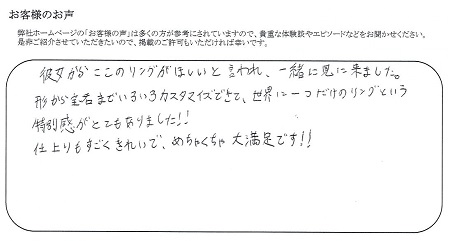 お客様のお声
弊社ホームページの「お客様の声」は多くの方が参考にされていますので、貴重な体験談やエピソードなどをお聞かせください。
是非ご紹介させていただきたいので、掲載のご許可もいただければ幸いです。
彼女から ここのリングがほしいと 言われ、一緒に見に来ました。
形から宝石まで いろいろカスタマイズできて、世界に一つだけのリングという
特別感がとてもありました!!
仕上りもすごくきれいで、めちゃくちゃ 大満足です!!